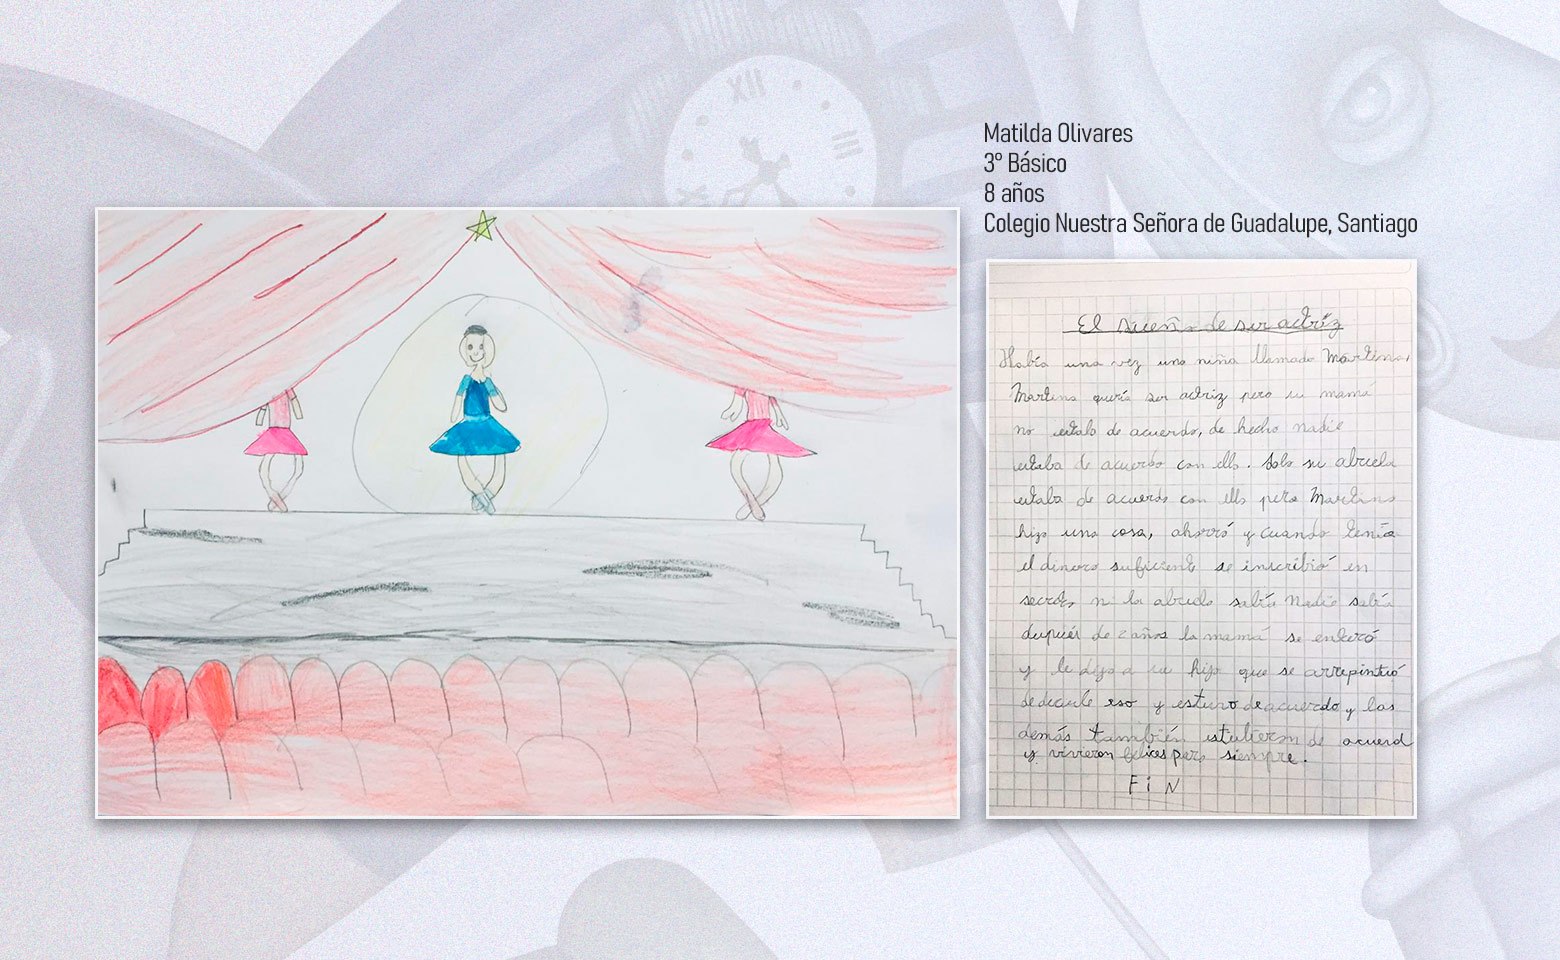 Matilda Olivares
3º Básico
8 años
Colegio Nuestra Señora de Guadalupe, Santiago
El sueño de ser actríz
Había una vez una niña llamada Martina,
Martina quería ser actriz pero su mamá
no estaba de acuerdo, de hecho nadie
estaba de acuerdo con ella. Solo su abuela
estaba de acuerdo con ella pero Martina
hizo una cosa, ahorró y cuando tenía
el dinero suficiente se inscribió en
secreto, ni la abuela sabía nadie sabía
después de 2 años la mamá se enteró
y le dijo a su hija que se arrepintió
de decirle eso y estuvo de acuerdo y los
demás también estubieron de acuerd
y vivieron felices para siempre.
FiN
XII
III